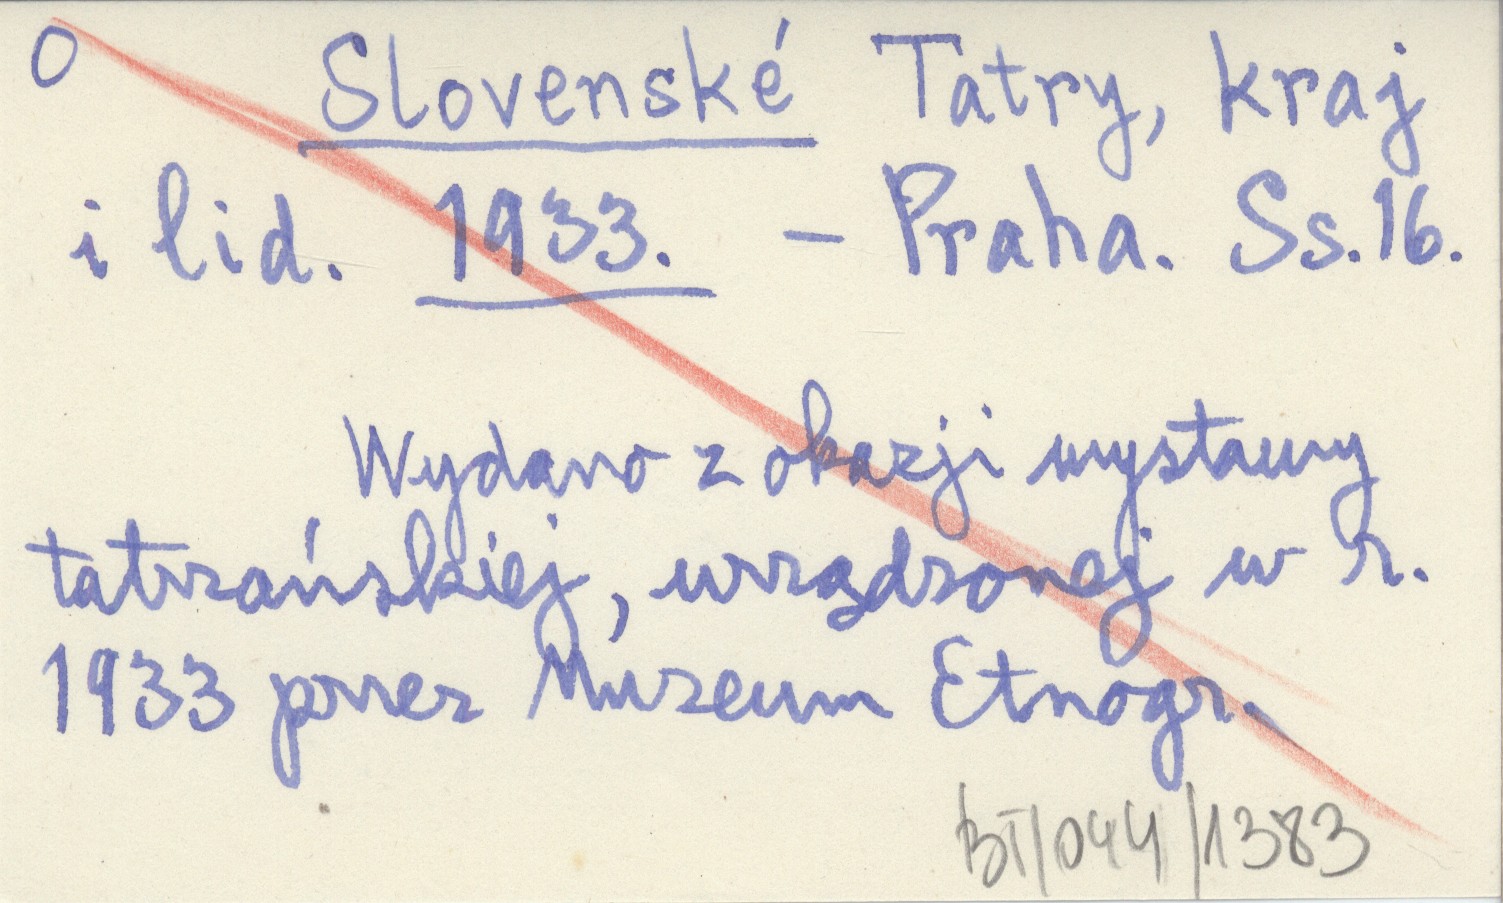 O Slovenské Tatry, kraj
i lid. 1933. – Praha. Ss. 16.
Wydano z okazji wystawy
tatrzańskiej, urządzonej w r.
1933 przez Muzeum Etnogr.
BT/044/1383